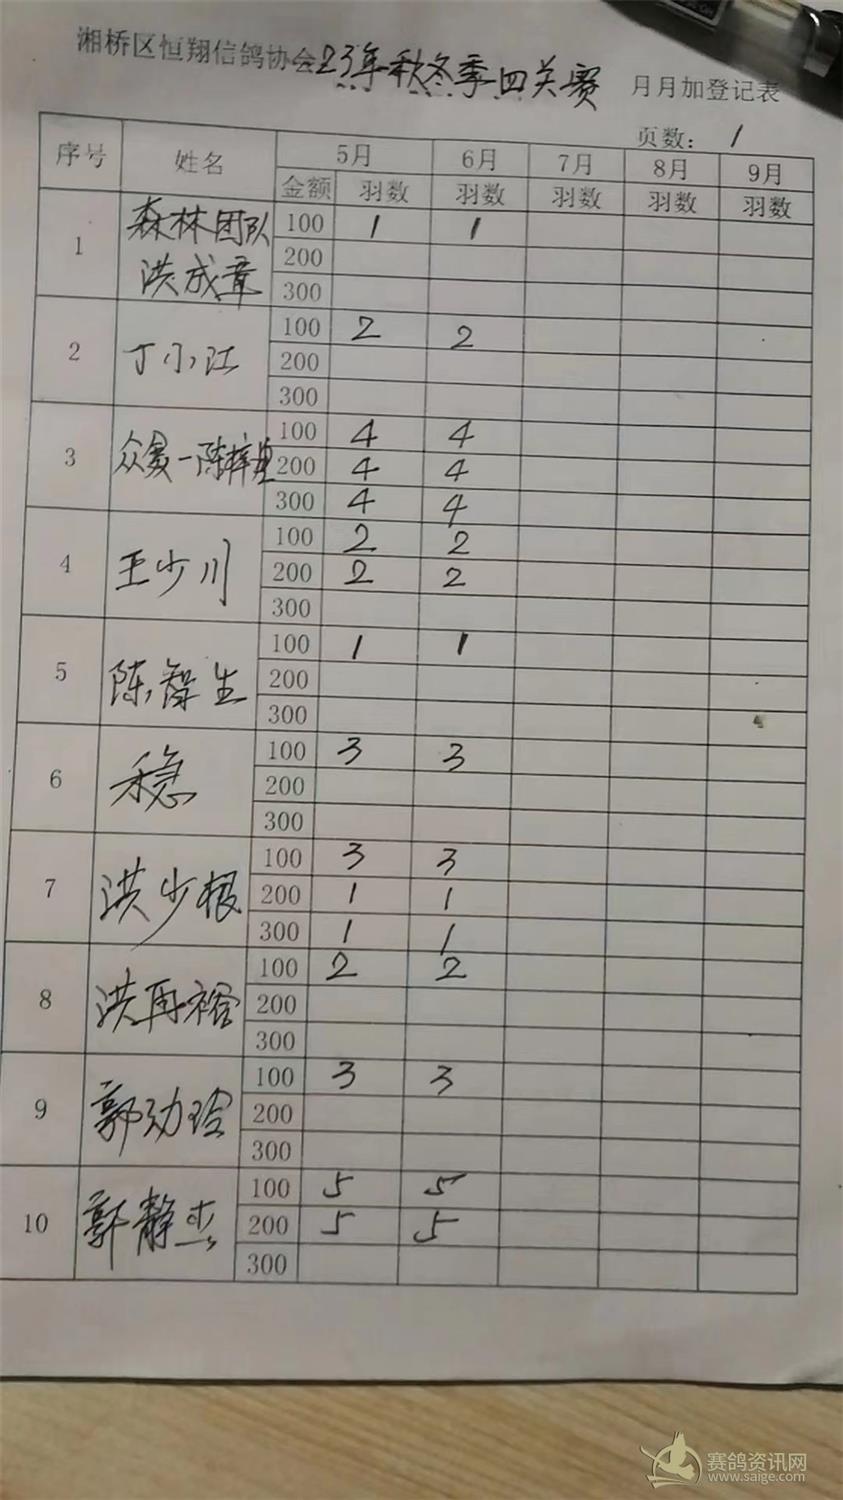 湘桥区恒翔信鸽协会23年秋冬季四关赛 月月加登记表
页数: 1
序号 姓名 5月 6月 7月 8月 9月
金额 羽数 羽数 羽数 羽数 羽数
1 森林团队 洪成章 100 1 1
200
300
2 丁小江 100 2 2
200
300
3 众 一陈梓 100 4 4
200 4 4
300 4 4
4 王少川 100 2 2
200 2 2
300
5 陈智生 100 1 1
200
300
6 稳 100 3 3
200
300
7 洪少根 100 3 3
200 1 1
300 1 1
8 洪再裕 100 2 2
200
300
9 郭劲玲 100 3 3
200
300
10 郭静杰 100 5 5
200 5 5
300
赛鸽资讯网
www.saige.com